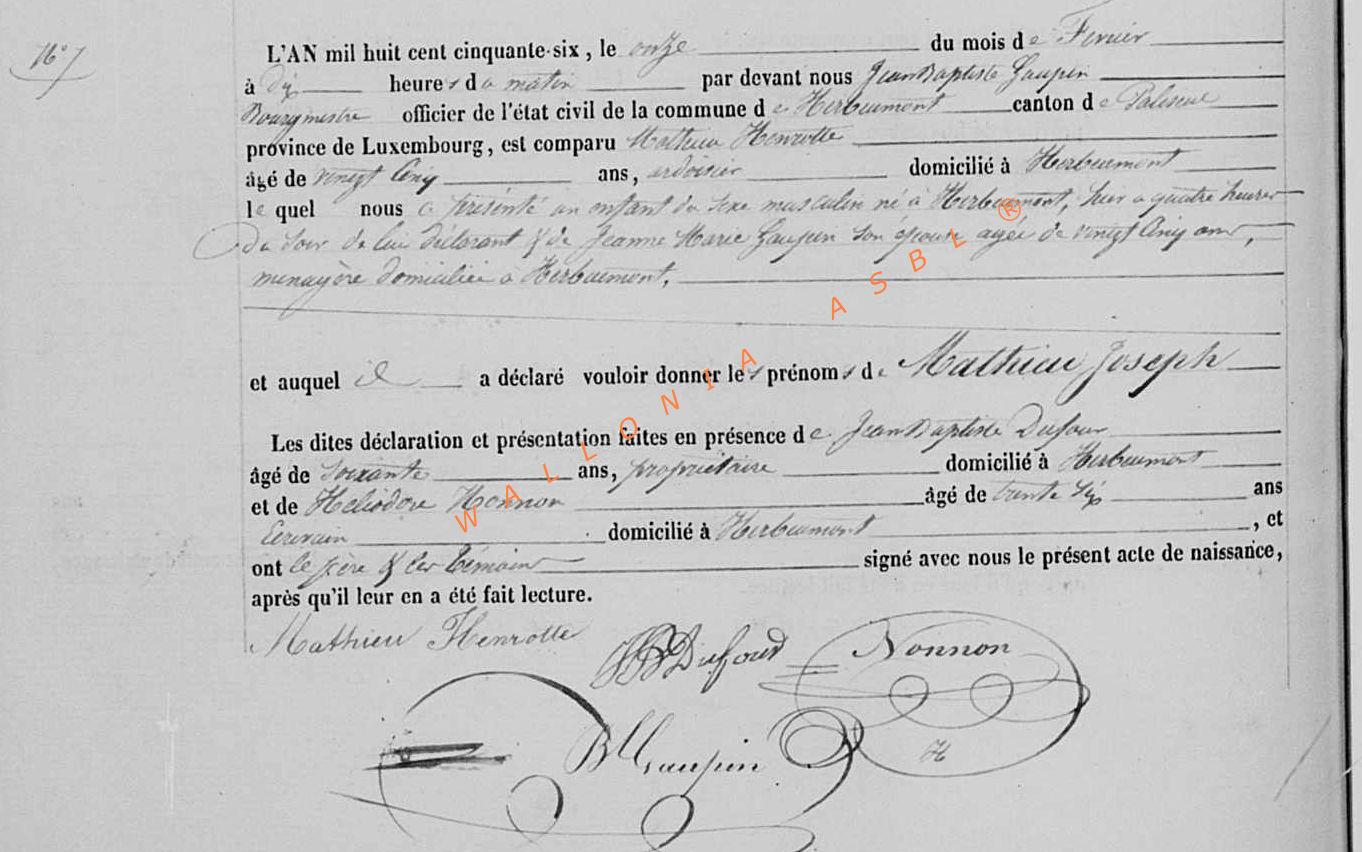 16°
L'AN mil huit cent cinquante-six, le onze du mois de Fevrier
à dix heures du matin par devant nous Jean Baptiste Gaupin
Bourgmestre officier de l'état civil de la commune de Herbeumont canton de Paliseul
province de Luxembourg, est comparu Mathieu Henrotte
âgé de vingt Cinq ans, ardoisier domicilié à Herbeumont
le quel nous a présenté un enfant du sexe masculin né à Herbeumont, hier a quatre heures
du soir de lui déclarant & de Jeanne Marie Gaupin son épouse agée de vingt Cinq ans,
menagère domiciliée a Herbeumont.
et auquel il a déclaré vouloir donner les prénoms de Mathieu Joseph
Les dites déclaration et présentation faites en présence de Jean Baptiste Dufour
âgé de soixante ans, propriétaire domicilié à Herbeumont
et de Heliodore Nonnon âgé de trente six ans
Ecrivain domicilié à Herbeumont, et
ont le père & les témoins signé avec nous le présent acte de naissance,
après qu'il leur en a été fait lecture.
Mathieu Henrotte
JB Dufour
Nonnon
H
B Gaupin
WALLONIA ASBL ®